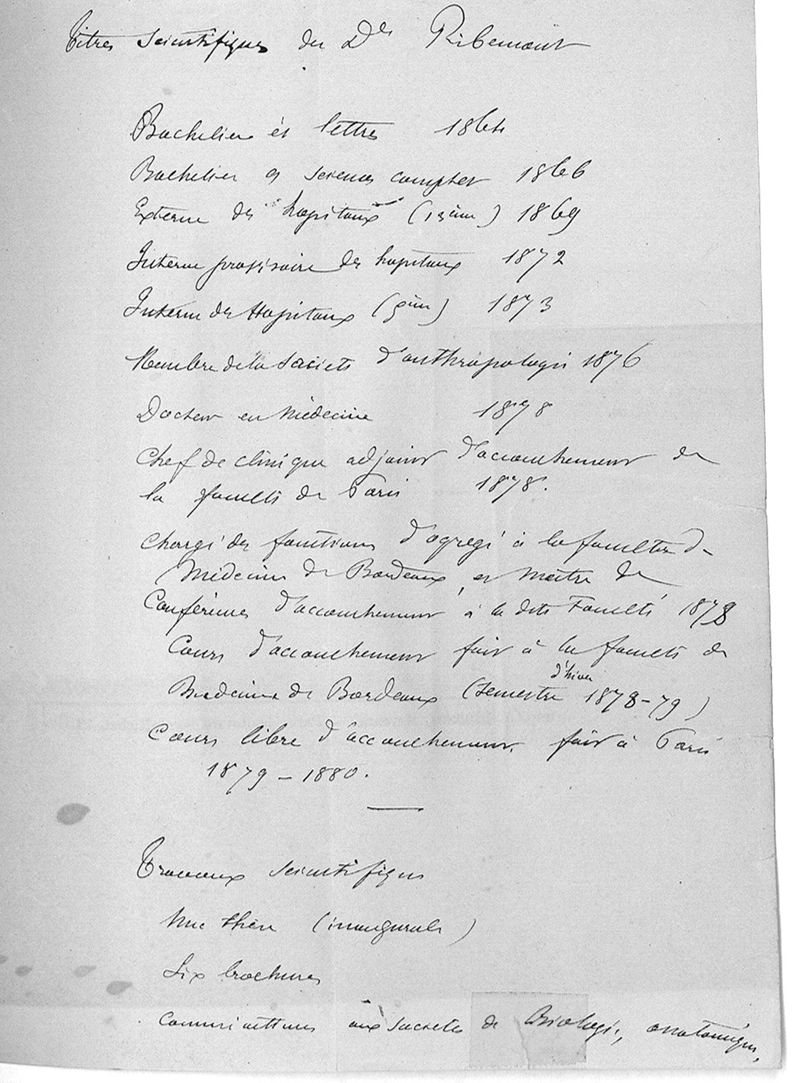 Titres Scientifiques du Dr Ribemont
Bachelier ès lettres 1864
Bachelier ès sciences complet 1866
Externe des hopitaux 1869
Interne provisoire des hopitaux 1872
Interne des Hopitaux 1873
Membre de la Société d'anthropologie 1876
Docteur en Médecine 1878
Chef de clinique adjoint d'accouchement de
la faculté de Paris 1878.
Chargé des fonctions d'agrégé à la faculté de
Médecine de Bordeaux, et Maître de
Conférences d'accouchement à la dite Faculté 1878
Cours d'accouchement fait à la faculté de
Médecine de Bordeaux (Semestre d'hiver 1878-79)
Cours libre d'accouchement fait à Paris
1879 - 1880.
Travaux scientifiques
Une thèse (inaugurale)
Six brochures
Communications aux sociétés de Biologie, anatomique,